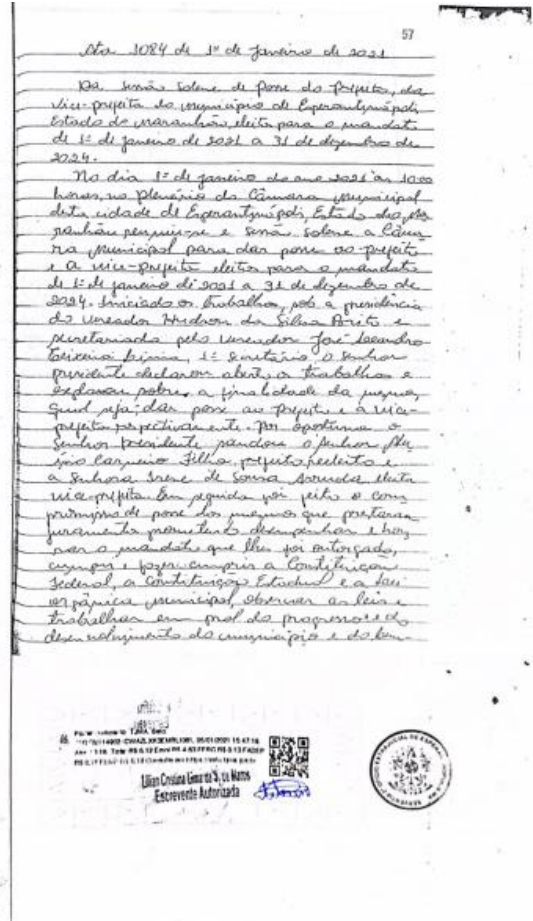 57
Ata 1084 de 1º de Janeiro de 2021
Da sessão solene de posse do Prefeito, da
Vice-prefeita do município de Esperantinópolis,
Estado do Maranhão, eleita para o mandato
de 1º de janeiro de 2021 a 31 de dezembro de
2024.
No dia 1º de janeiro do ano 2021 às 10:00
horas, no Plenário da Câmara Municipal
desta cidade de Esperantinópolis, Estado do Ma
ranhão e sessão solene a Câma
ra Municipal para dar posse ao prefeito
e a vice-prefeita eleitos para o mandato
de 1º de janeiro de 2021 a 31 de dezembro de
2024. Iniciado os trabalhos, sob a presidência
do vereador Hudson da Silva Brito e
secretariado pelo vereador José Leandro
Teixeira 1º Secretário o Senhor
presidente declarou aberto os trabalhos e
explanou sobre a finalidade da mesma,
qual seja; dar posse ao prefeito e a vice-
prefeita respectivamente. Por oportuno o
Senhor presidente o Senhor Alu
ísio Carneiro Filho prefeito reeleito e
a Senhora Irene de Sousa eleita
vice-prefeita. Em seguida foi feito o com
promisso de posse dos mesmos que prestaram
juramento prometendo desempenhar e hon
rar o mandato que lhes foi outorgado,
cumprir e fazer cumprir a Constituição
Federal, a Constituição Estadual e a Lei
orgânica municipal, observar as leis e
trabalhar em prol do progresso e do
desenvolvimento do município e do bem-
05/01/2021 15:47:16
Escrevente Autorizada